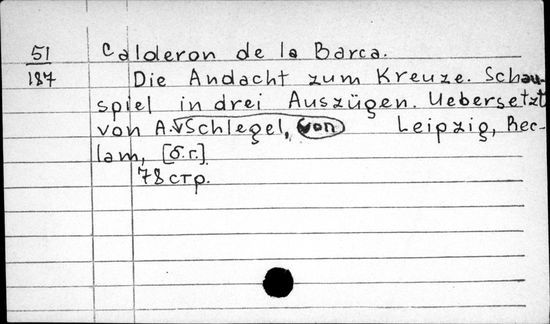 51 Calderon de la Barca.
187 Die Andacht zum Kreuze. Schau-
spiel in drei Auszügen. Uebersetzt
von A. Schlegel, von Leipzig, Rec-
lam, [б.г.]
78 стр.